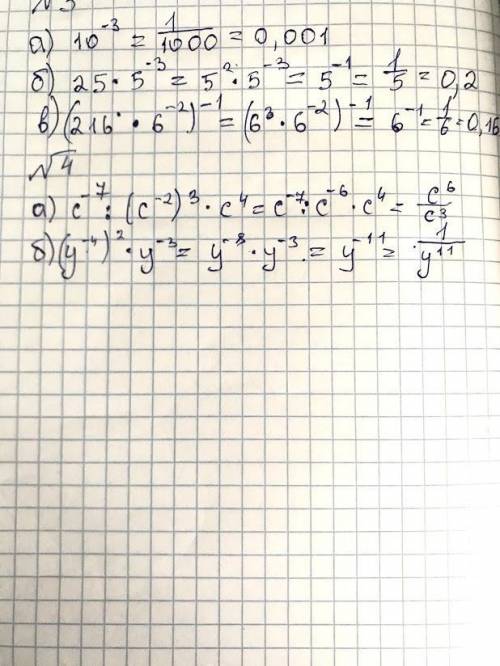 №3
а) 10⁻³ = 1/1000 = 0,001
б) 25 · 5⁻³ = 5² · 5⁻³ = 5⁻¹ = 1/5 = 0,2
в) (216 · 6⁻²)⁻¹ = (6³ · 6⁻²)⁻¹ = 6⁻¹ = 1/6 = 0,16
№4
а) c⁻⁷ : (c⁻²)³ · c⁴ = c⁻⁷ : c⁻⁶ · c⁴ = c⁶/c³
б) (y⁻⁴)² · y⁻³ = y⁻⁸ · y⁻³ = y⁻¹¹ = 1/y¹¹